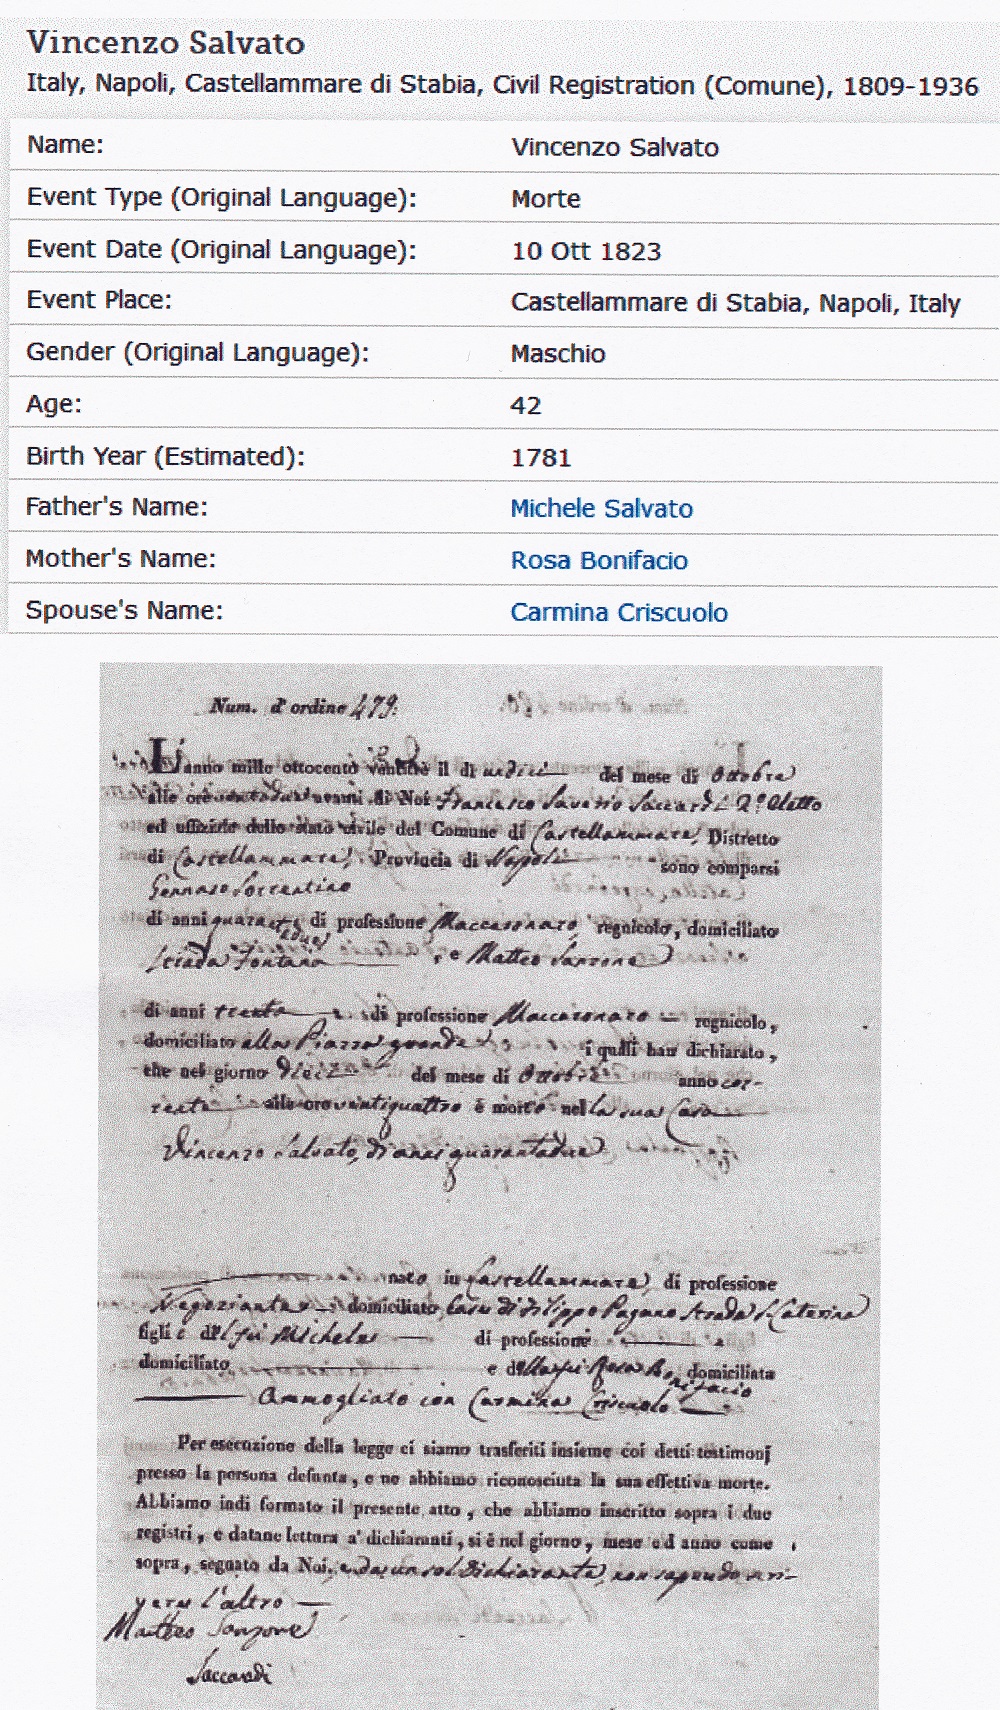 Vincenzo Salvato
Italy, Napoli, Castellammare di Stabia, Civil Registration (Comune), 1809-1936
Name: Vincenzo Salvato
Event Type (Original Language): Morte
Event Date (Original Language): 10 Ott 1823
Event Place: Castellammare di Stabia, Napoli, Italy
Gender (Original Language): Maschio
Age: 42
Birth Year (Estimated): 1781
Father's Name: Michele Salvato
Mother's Name: Rosa Bonifacio
Spouse's Name: Carmina Criscuolo
Num. d'ordine 479.
L'anno mille ottocento ventitrè il dì undici del mese di Ottobre
alle ore avanti di Noi Francesco Saverio Saccardi 2º Eletto
ed uffiziale dello stato civile del Comune di Castellammare, Distretto
di Castellammare, Provincia di Napoli sono comparsi
Gennaro Sorrentino
di anni quaranta due di professione Maccaronaro regnicolo, domiciliato
Strada Fontana, e Matteo Sanzone
di anni trenta di professione Maccaronaro regnicolo,
domiciliato alla Piazza grande i quali han dichiarato,
che nel giorno dieci del mese di Ottobre anno cor-
rente alle ore ventiquattro è morto nella sua Casa
Vincenzo Salvato, di anni quarantadue
nato in Castellammare di professione
Negoziante domiciliato Casa di Filippo Pagano Strada S. Caterina
figlio del fu Michele di professione
domiciliato e della fu Rosa Bonifacio domiciliata
Ammogliato con Carmina Criscuolo
Per esecuzione della legge ci siamo trasferiti insieme coi detti testimonj
presso la persona defunta, e ne abbiamo riconosciuta la sua effettiva morte.
Abbiamo indi formato il presente atto, che abbiamo inscritto sopra i due
registri, e datane lettura a' dichiaranti, si è nel giorno, mese ed anno come
sopra, segnato da Noi, e da un sol dichiarante, non sapendo scri-
vere l'altro
Matteo Sanzone
Saccardi